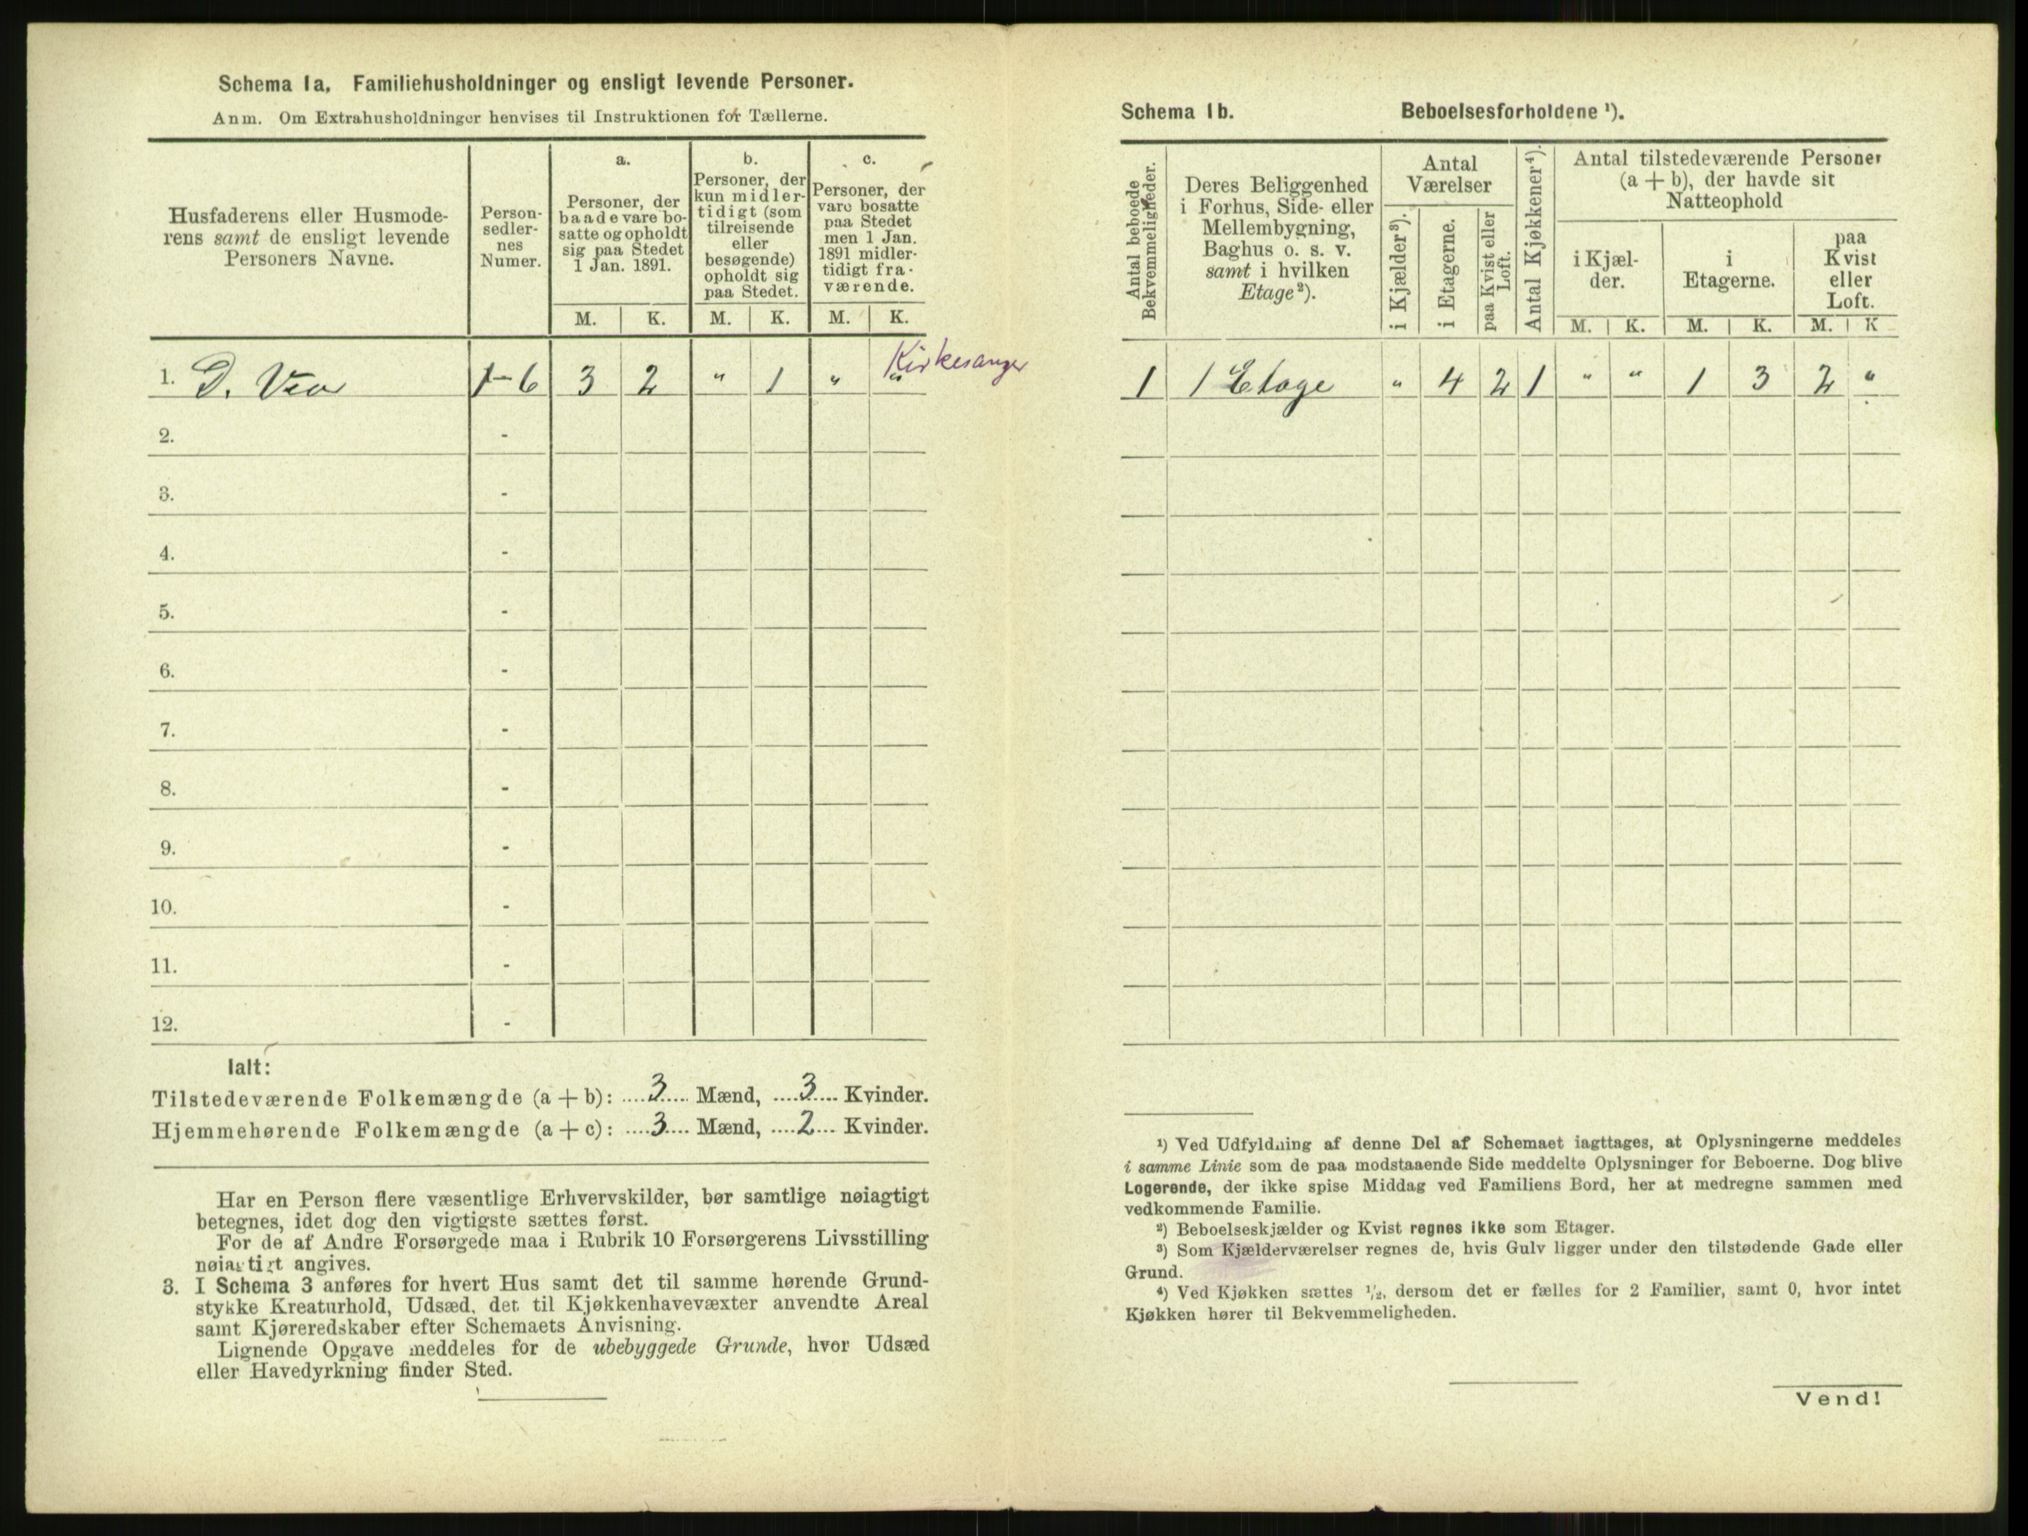 Schema 1a. Familiehusholdninger og ensligt levende Personer.
Anm. Om Extrahusholdninger henvises til Instruktionen for Tællerne.
Husfaderens eller Husmode-
rens samt de ensligt levende
Personers Navne.
Person-
sedler-
nes
Numer.
a.
Personer, der
baade vare bo-
satte og opholdt
sig paa Stedet
1 Jan. 1891.
b.
Personer, der
kun midler-
tidigt (som
tilreisende
eller
besøgende)
opholdt sig
paa Stedet.
c.
Personer, der
vare bosatte
paa Stedet
men 1 Jan.
1891 midler-
tidigt fra-
værende.
M. K. M. K. M. K.
Kirkesanger
1. D. Vea 1-6 3 2 " 1 " "
2. -
3. -
4. -
5. -
6. -
7. -
8. -
9. -
10. -
11. -
12. -
Ialt:
Tilstedeværende Folkemængde (a + b): ....3..... Mænd, ....3.... Kvinder.
Hjemmehørende Folkemængde (a + c): ....3.... Mænd, ....2.... Kvinder.
Har en Person flere væsentlige Erhvervskilder, bør samtlige nøiagtigt
betegnes, idet dog den vigtigste sættes først.
For de af Andre Forsørgede maa i Rubrik 10 Forsørgerens Livsstilling
nøiagtigt angives.
3. I Schema 3 anføres for hvert Hus samt det til samme hørende Grund-
stykke Kreaturhold, Udsæd, det til Kjøkkenhavevæxter anvendte Areal
samt Kjøreredskaber efter Schemaets Anvisning.
Lignende Opgave meddeles for de ubebyggede Grunde, hvor Udsæd
eller Havedyrkning finder Sted.
Schema 1b. Beboelsesforholdene ¹).
Antal beboede
Bekvemmeligheder.
Deres Beliggenhed
i Forhus, Side- eller
Mellembygning,
Baghus o. s. v.
samt i hvilken
Etage²).
Antal
Værelser
i Kjælder³).
i Etagerne.
paa Kvist eller
Loft.
Antal Kjøkkener⁴).
Antal tilstedeværende Personer
(a + b), der havde sit
Natteophold
i Kjæl-
der.
i
Etagerne.
paa
Kvist
eller
Loft.
M. K. M. K. M. K
1 1 Etage " 4 2 1 " " 1 3 2 "
¹) Ved Udfyldning af denne Del af Schemaet iagttages, at Oplysningerne meddeles
i samme Linie som de paa modstaaende Side meddelte Oplysninger for Beboerne. Dog blive
Logerende, der ikke spise Middag ved Familiens Bord, her at medregne sammen med
vedkommende Familie.
²) Beboelseskjælder og Kvist regnes ikke som Etager.
³) Som Kjælderværelser regnes de, hvis Gulv ligger under den tilstødende Gade eller
Grund.
⁴) Ved Kjøkken sættes ½, dersom det er fælles for 2 Familier, samt 0, hvor intet
Kjøkken hører til Bekvemmeligheden.
Vend!